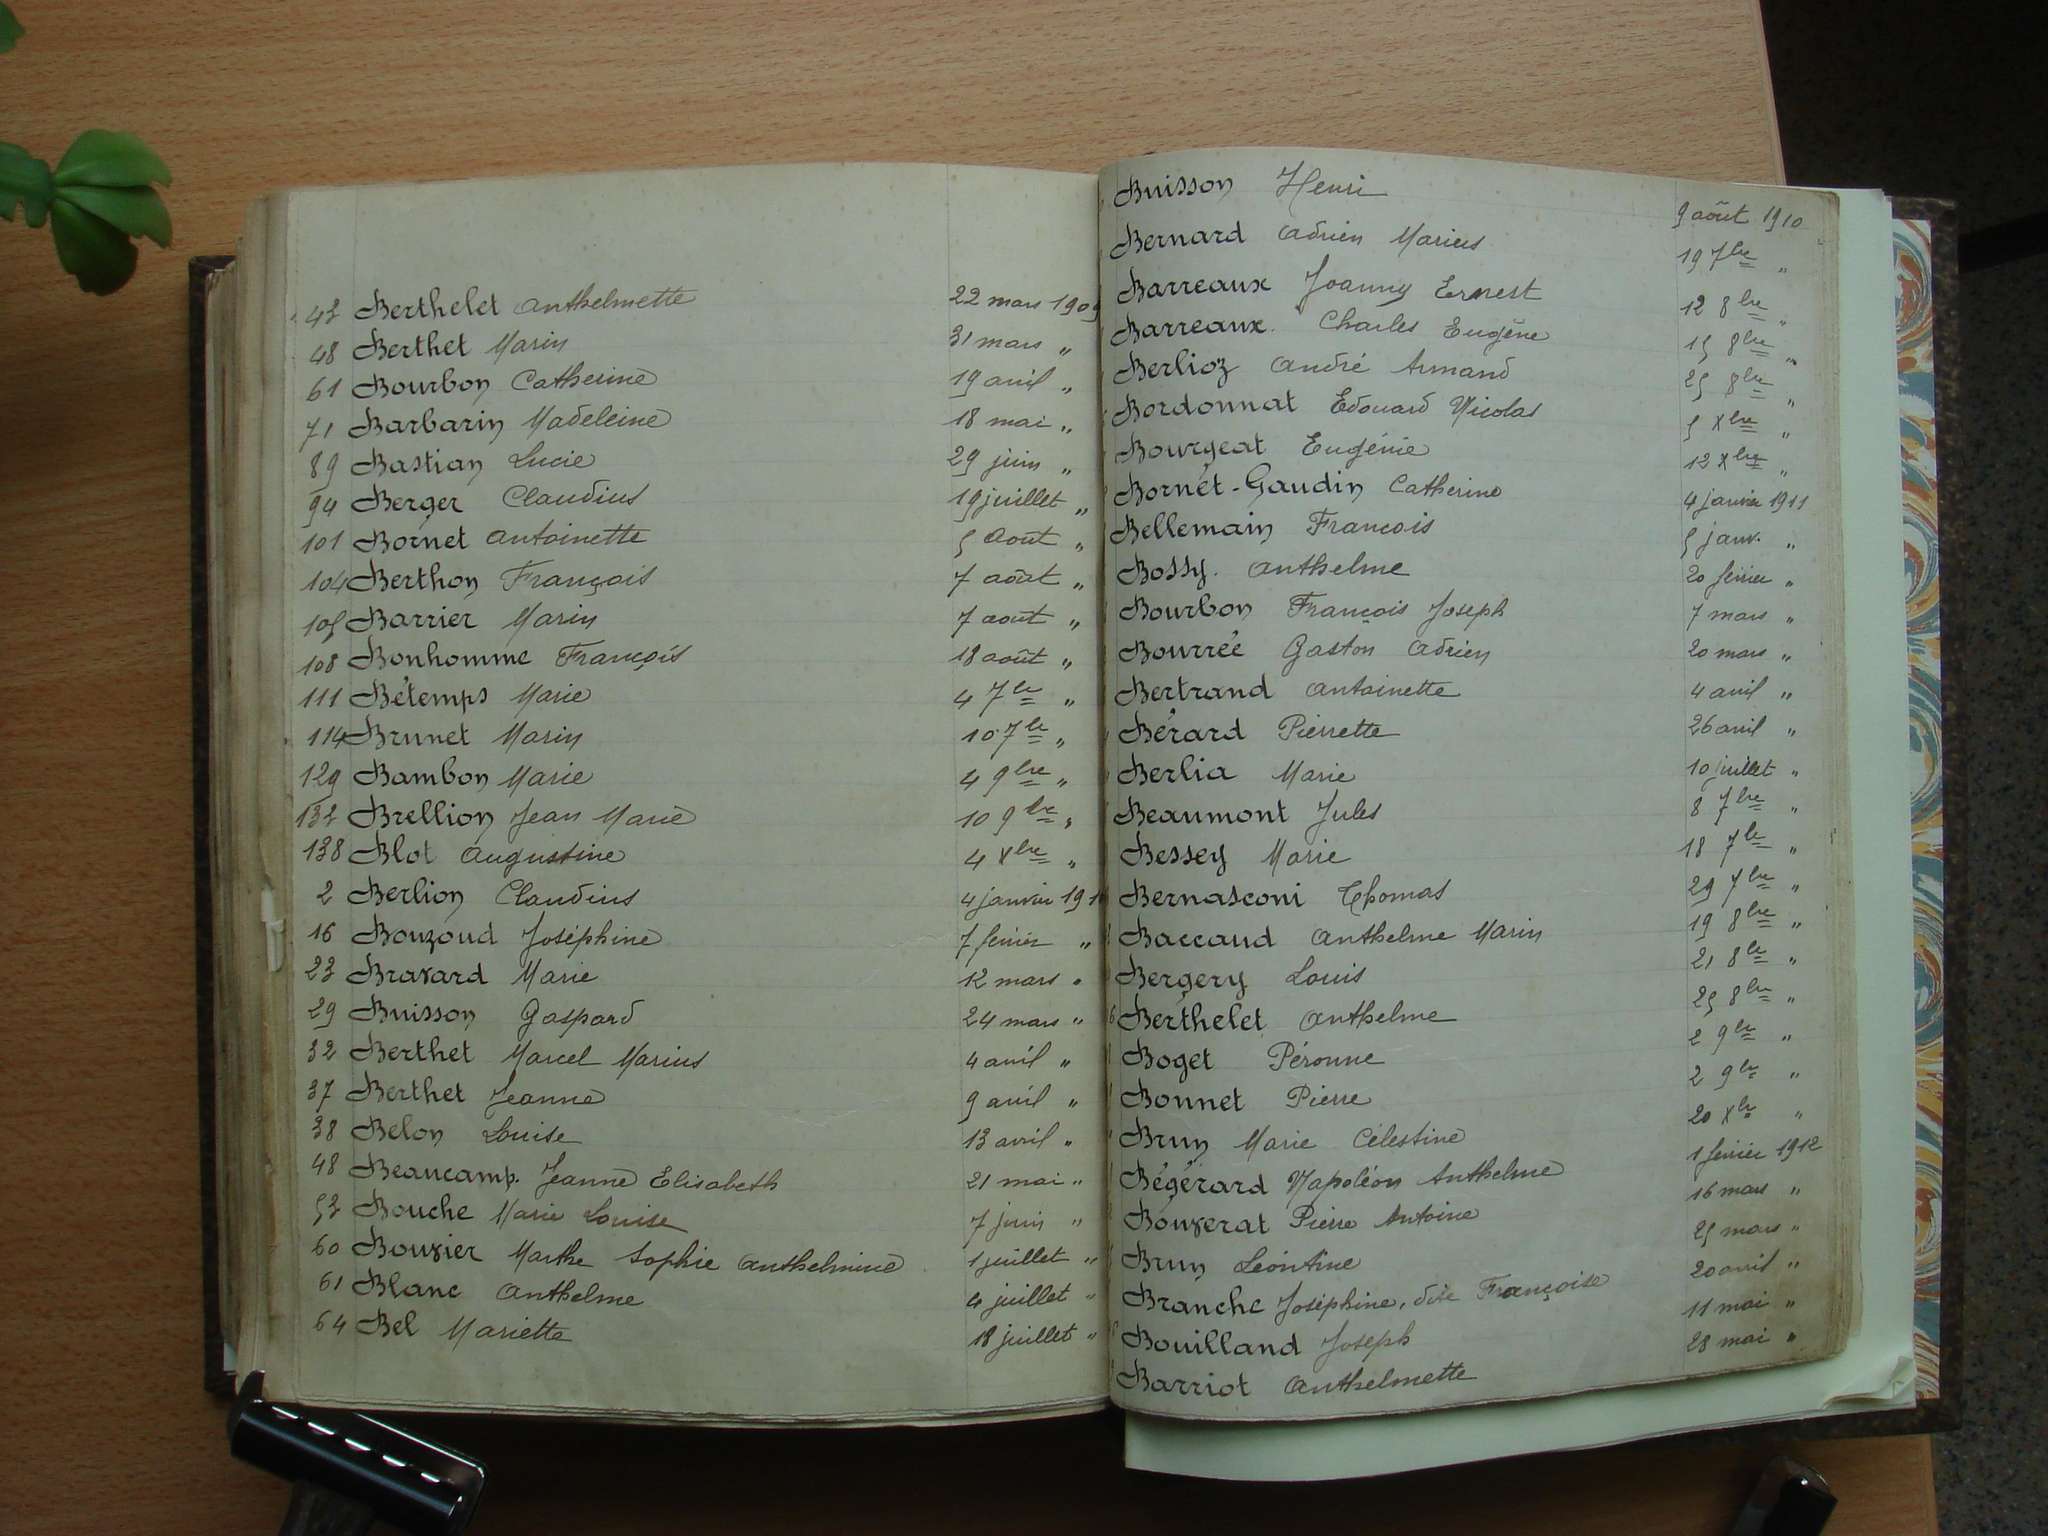 43 Berthelet Anthelmette 22 mars 1909
48 Berthet Marin 31 mars "
61 Bourbon Catherine 19 avril "
71 Barbarin Madeleine 18 mai "
89 Bastian Lucie 29 juin "
94 Berger Claudius 19 juillet "
101 Bornet Antoinette 5 Août "
104 Berthon François 7 août "
105 Barrier Marin 7 août "
108 Bonhomme François 18 août "
111 Bétemps Marie 4 7bre "
114 Brunet Marin 10 7bre "
129 Bambon Marie 4 9bre "
132 Brellion Jean Marie 10 9bre "
138 Blot Augustine 4 Xbre "
2 Berlion Claudius 4 janvier 191
16 Bouzoud Joséphine 7 février "
23 Bravard Marie 12 mars "
29 Buisson Gaspard 24 mars "
32 Berthet Marcel Marius 4 avril "
37 Berthet Jeanne 9 avril "
38 Belon Louise 13 avril "
48 Beaucamp. Jeanne Elisabeth 21 mai "
53 Bouche Marie Louise 7 juin "
60 Bouvier Marthe Sophie Anthelmine 1 juillet "
61 Blanc Anthelme 4 juillet "
64 Bel Mariette 18 juillet "
Buisson Henri 9 août 1910
Bernard Adrien Marius 19 7bre "
Barreaux Joanny Ernest 12 8bre "
Barreaux Charles Eugène 15 8bre "
Berlioz André Armand 25 8bre "
Bordonnat Edouard Nicolas 5 Xbre "
Bourgeat Eugénie 12 Xbre "
Bornet-Gaudin Catherine 4 janvier 1911
Bellemain François 5 janv. "
Bossy. Anthelme 20 février "
Bourbon François Joseph 7 mars "
Bourrée Gaston Adrien 20 mars "
Bertrand Antoinette 4 avril "
Bérard Pierrette 26 avril "
Berlia Marie 10 juillet "
Beaumont Jules 8 7bre "
Bessey Marie 18 7bre "
Bernasconi Thomas 29 7bre "
Baccaud Anthelme Marin 19 8bre "
Bergery Louis 21 8bre "
Berthelet Anthelme 25 8bre "
Boget Péronne 2 9bre "
Bonnet Pierre 2 9bre "
Brun Marie Célestine 20 Xbre "
Bégérard Napoléon Anthelme 1 février 1912
Bouverat Pierre Antoine 16 mars "
Brun Léontine 25 mars "
Branche Joséphine, dite Françoise 20 avril "
Bouilland Joseph 11 mai "
Barriot Anthelmette 28 mai "